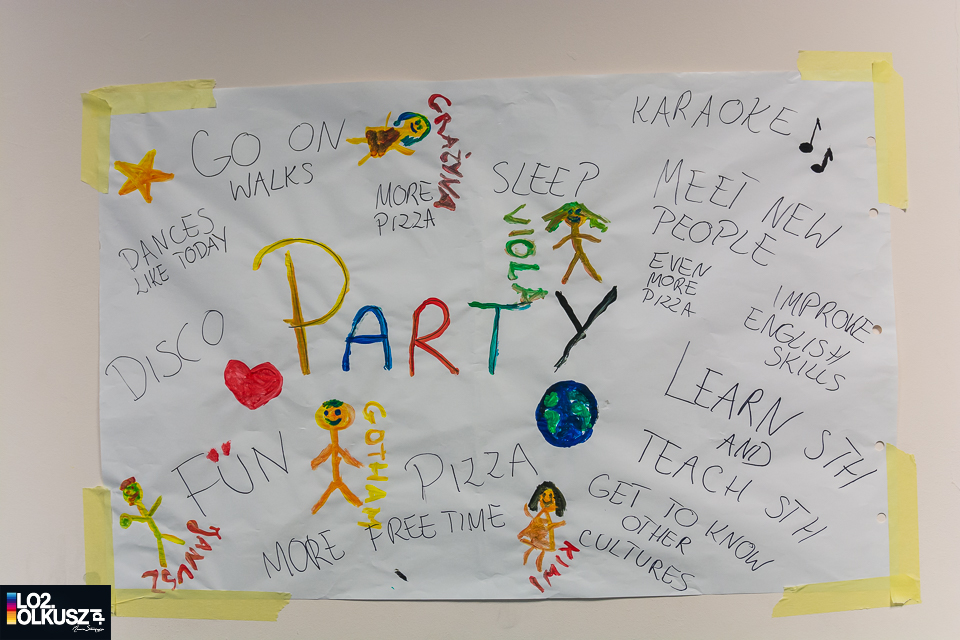 GO ON
WALKS
GRAŻYNA
KARAOKE
MORE
PIZZA
SLEEP
MEET NEW
PEOPLE
DANCES
LIKE TODAY
VIOLA
EVEN
MORE
PIZZA
PARTY
IMPROVE
ENGLISH
SKILLS
DISCO
LEARN STH
AND
TEACH STH
GOTHAM
FUN
PIZZA
GET TO KNOW
OTHER
CULTURES
JANUSZ
MORE FREE TIME
KIWI
LO2.
OLKUSZ.pl